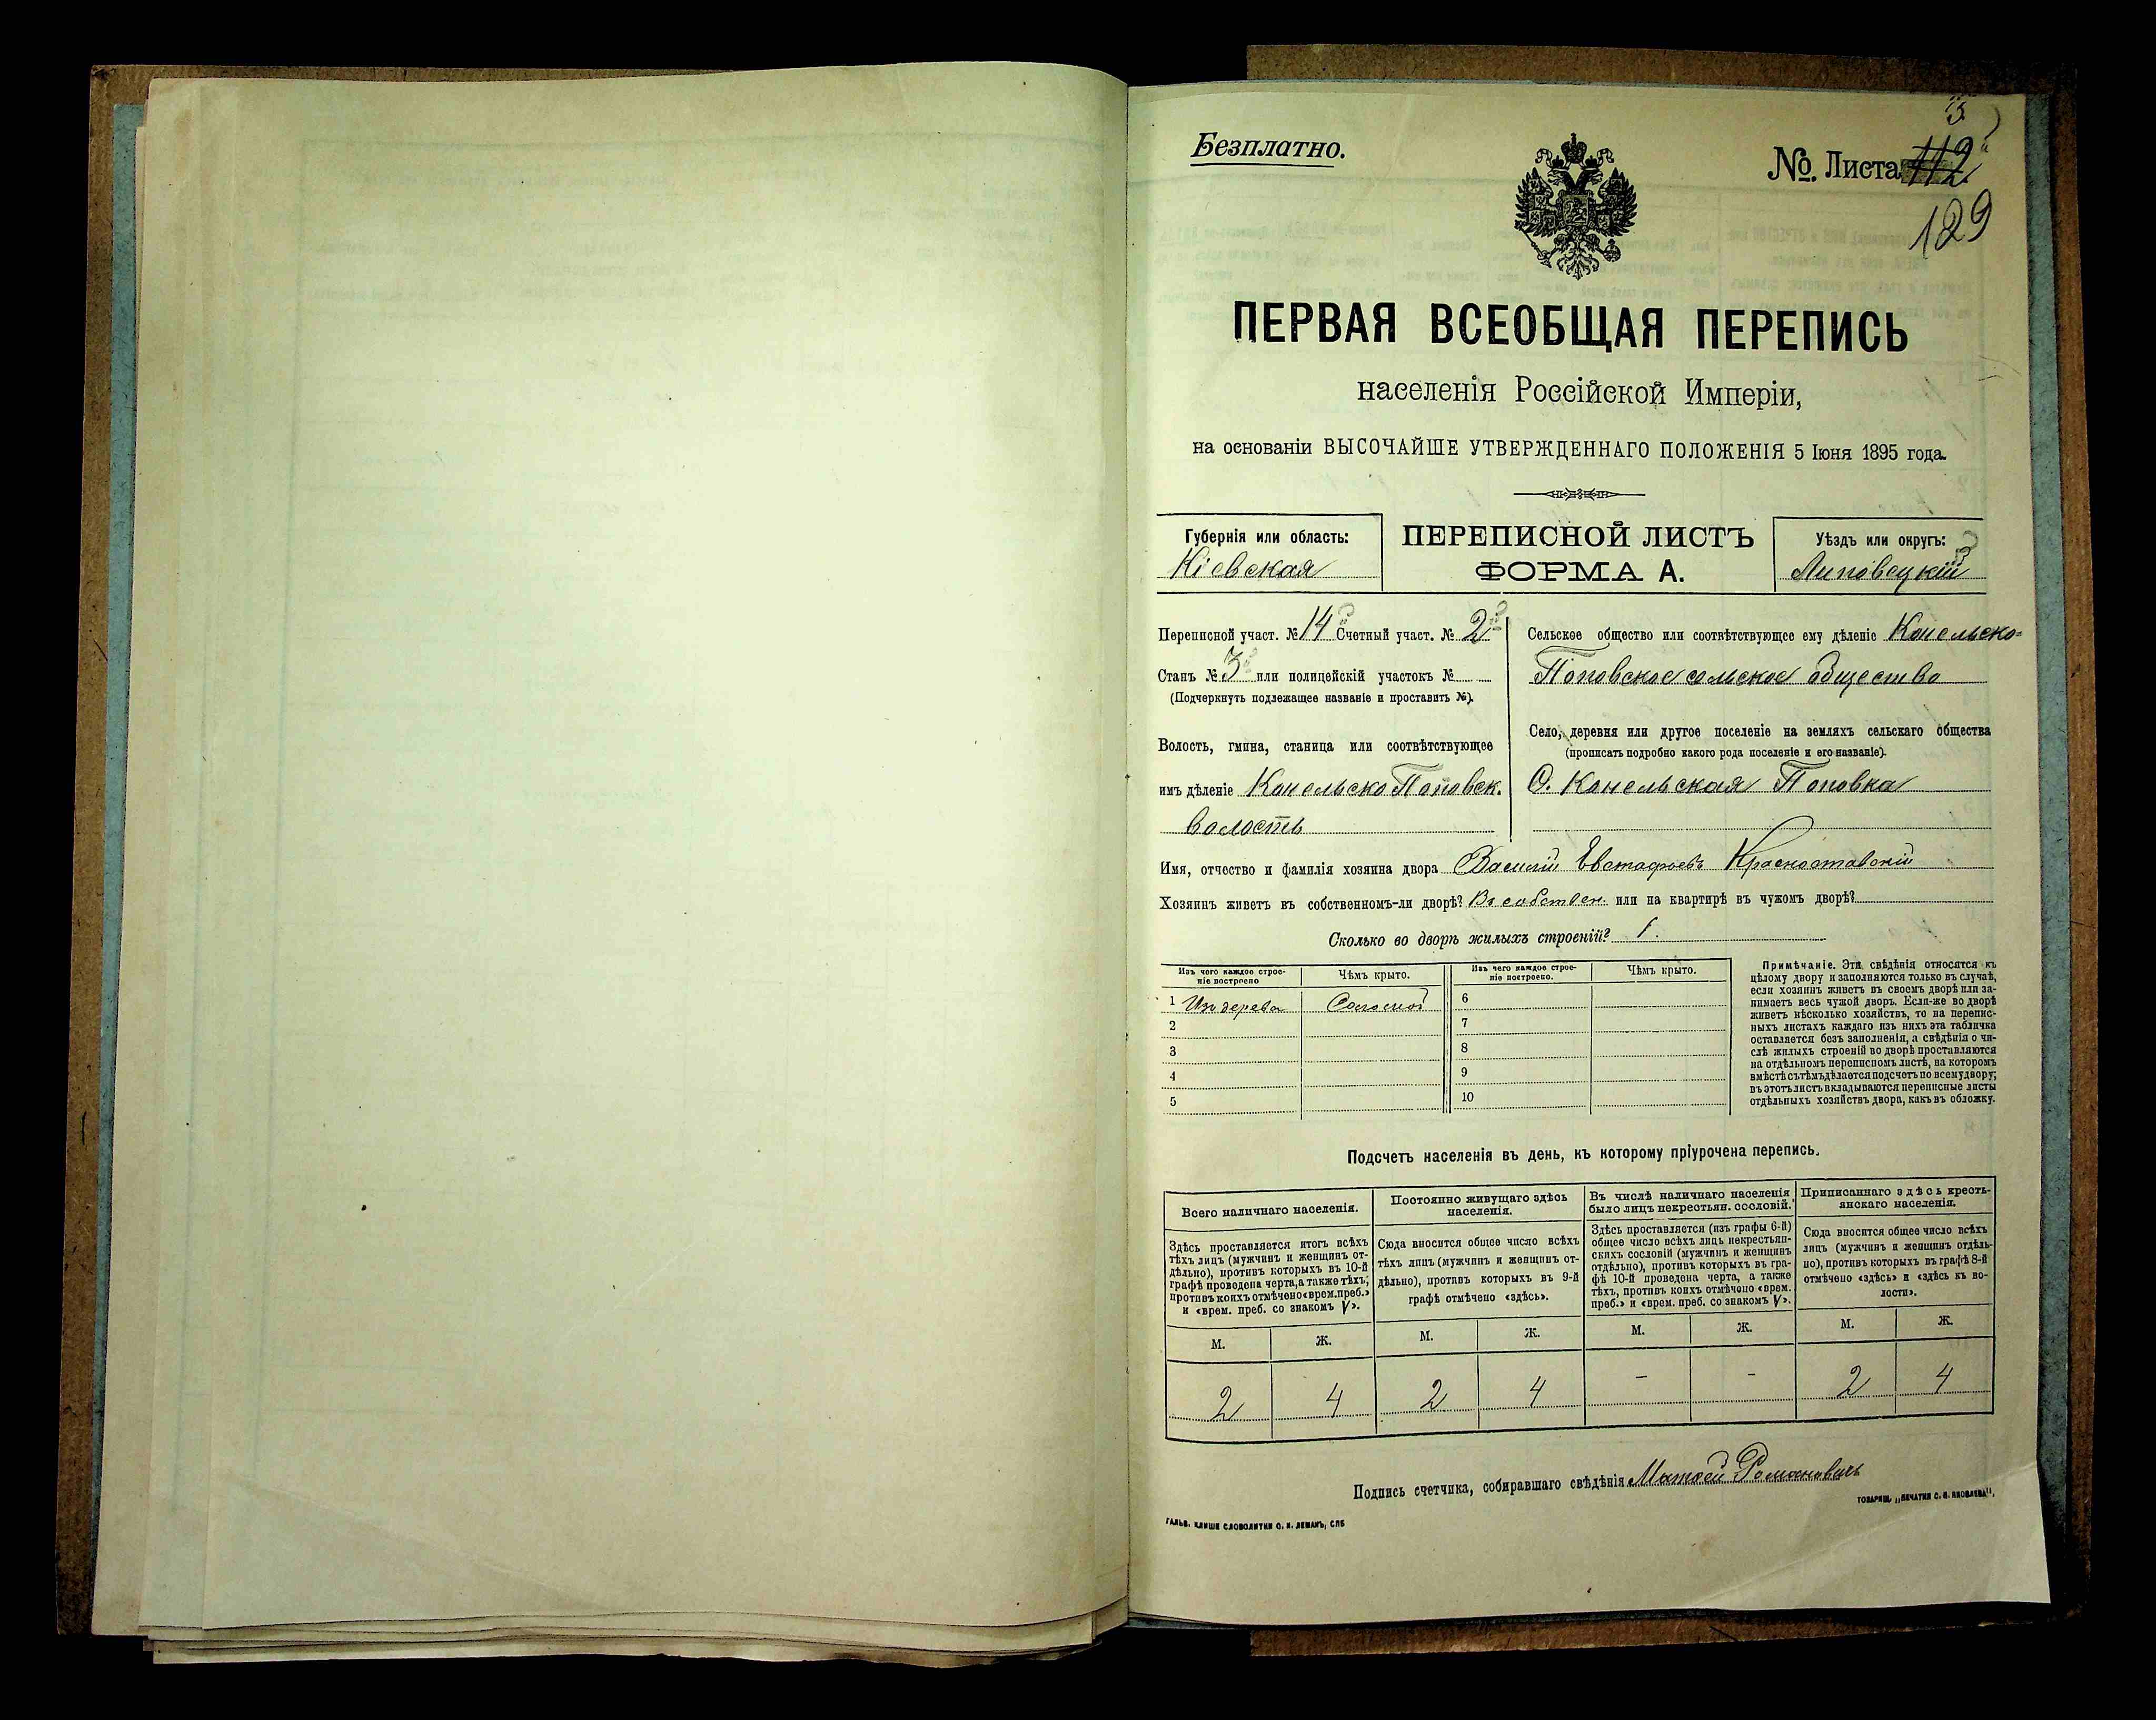 Безплатно.
№. Листа 112
129
ПЕРВАЯ ВСЕОБЩАЯ ПЕРЕПИСЬ
населенія Россійской Имперіи,
на основаніи ВЫСОЧАЙШЕ УТВЕРЖДЕННАГО ПОЛОЖЕНІЯ 5 Іюня 1895 года.
Губернія или область:
Кіевская
ПЕРЕПИСНОЙ ЛИСТЪ
ФОРМА А.
Уѣздъ или округъ:
Липовецкій
Переписной участ. № 14 Счетный участ. № 2
Станъ № 3 или полицейскій участокъ №
(Подчеркнуть подлежащее названіе и проставить №).
Волость, гмина, станица или соотвѣтствующее
имъ дѣленіе Конельско Поповск.
волость
Сельское общество или соотвѣтствующее ему дѣленіе Конельско-
Поповское сельское общество
Село, деревня или другое поселеніе на земляхъ сельскаго общества
(прописать подробно какого рода поселеніе и его названіе).
С. Конельская Поповка
Имя, отчество и фамилія хозяина двора Василій Евстафьевъ Красноставскій
Хозяинъ живетъ въ собственномъ-ли дворѣ? Въ собствен. или на квартирѣ въ чужомъ дворѣ?
Сколько во дворѣ жилыхъ строеній? 1.
Изъ чего каждое строе-
ніе построено
Чѣмъ крыто.
Изъ чего каждое строе-
ніе построено.
Чѣмъ крыто.
1 Изъ дерева Соломой
2
3
4
5
6
7
8
9
10
Примѣчаніе. Эти свѣдѣнія относятся къ
цѣлому двору и заполняются только въ случаѣ,
если хозяинъ живетъ въ своемъ дворѣ или за-
нимаетъ весь чужой дворъ. Если-же во дворѣ
живетъ нѣсколько хозяйствъ, то на перепис-
ныхъ листахъ каждаго изъ нихъ эта табличка
оставляется безъ заполненія, а свѣдѣнія о чи-
слѣ жилыхъ строеній во дворѣ проставляются
на отдѣльномъ переписномъ листѣ, на которомъ
вмѣстѣ съ тѣмъ дѣлается подсчетъ по всему двору;
въ этотъ листъ вкладываются переписные листы
отдѣльныхъ хозяйствъ двора, какъ въ обложку.
Подсчетъ населенія въ день, къ которому пріурочена перепись.
Всего наличнаго населенія.
Здѣсь проставляется итогъ всѣхъ
тѣхъ лицъ (мужчинъ и женщинъ от-
дѣльно), противъ которыхъ въ 10-й
графѣ проведена черта, а также тѣхъ,
противъ коихъ отмѣчено «врем. преб.»
и «врем. преб. со знакомъ V».
Постоянно живущаго здѣсь
населенія.
Сюда вносится общее число всѣхъ
тѣхъ лицъ (мужчинъ и женщинъ от-
дѣльно), противъ которыхъ въ 9-й
графѣ отмѣчено «здѣсь».
Въ числѣ наличнаго населенія
было лицъ некрестьян. сословій.
Здѣсь проставляется (изъ графы 6-й)
общее число всѣхъ лицъ некрестьян-
скихъ сословій (мужчинъ и женщинъ
отдѣльно), противъ которыхъ въ гра-
фѣ 10-й проведена черта, а также
тѣхъ, противъ коихъ отмѣчено «врем.
преб.» и «врем. преб. со знакомъ V».
Приписаннаго здѣсь кресть-
янскаго населенія.
Сюда вносится общее число всѣхъ
лицъ (мужчинъ и женщинъ отдѣль-
но), противъ которыхъ въ графѣ 8-й
отмѣчено «здѣсь» и «здѣсь къ во-
лости».
М. Ж. М. Ж. М. Ж. М. Ж.
2 4 2 4 - - 2 4
Подпись счетчика, собиравшаго свѣдѣнія Матвей Романовичъ
ТОВАРИЩ. „ПЕЧАТНЯ С. П. ЯКОВЛЕВА".
ГАЛЬВ. КЛИШЕ СЛОВОЛИТНИ О. И. ЛЕМАНЪ, СПБ